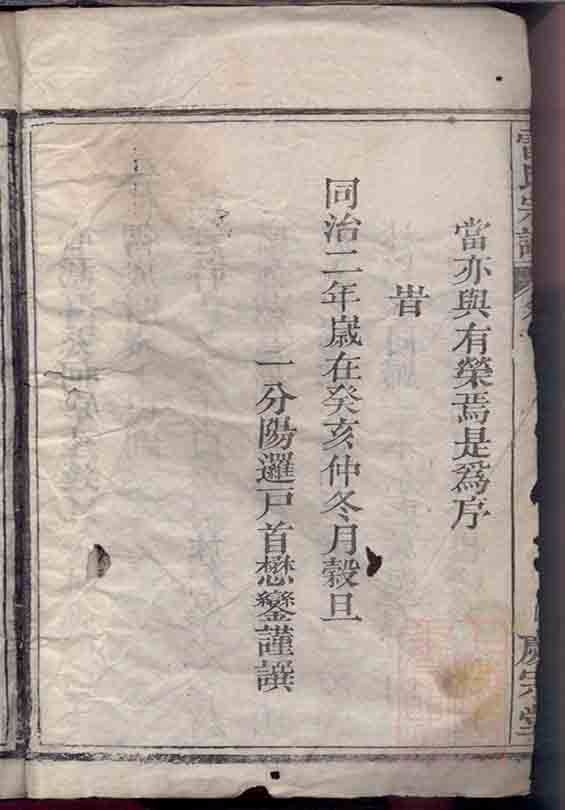 當亦與有榮焉是爲序
旹
同治二年歲在癸亥仲冬月穀旦
一分陽邏戸首懋鑾謹譔
氏宗譜
宗堂